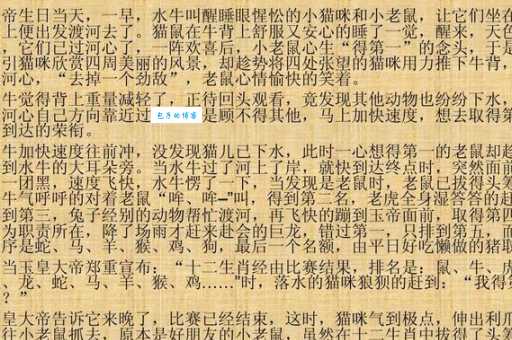 帝生日当天，一早，水牛叫醒睡眼惺忪的小猫咪和小老鼠，让它们坐在
上便出发渡河去了。猫鼠在牛背上舒服又安心的睡了一觉，醒来，天色
，它们已过河心了，一阵欢喜后，小老鼠心生“得第一”的念头，于是
引猫咪欣赏四周美丽的风景，却趁势将四处张望的猫咪用力推下牛背，
河心，“去掉一个劲敌”，老鼠心情愉快的笑着。
牛觉得背上重量减轻了，正待回头观看，竟发现其他动物也纷纷下水，
河心自己方向靠近过 包子的博客 是顾不得其他，马上加快速度，想去取得第
到达的荣衔。
牛加快速度往前冲，没发现猫儿已下水，此时一心想得第一的老鼠却趁
到水牛的大耳朵旁。当水牛过了河上了岸，就快到达终点时，突然面前
一团黑，速度飞快，水牛愣了一下，当发现是老鼠时，老鼠已拔得头筹
牛气呼呼的对着老鼠“哞、哞—”叫，得到第二名，老虎全身湿答答的赶
到第三，兔子经别的动物帮忙渡河，再飞快的蹦到玉帝面前，取得第四
为职责所在，降了场雨才赶来赴会的巨龙，错过第一，只排到第五，而
序是蛇、马、羊、猴、鸡、狗，最后一个名额，由平日好吃懒做的猪取
当玉皇大帝郑重宣布：“十二生肖经由比赛结果，排名是：鼠、牛、虎
、龙、蛇、马、羊、猴、鸡……"时，落水的猫咪狼狈的赶到：“我得第
？”
皇大帝告诉它来晚了，比赛已经结束，这时，猫咪气到极点，伸出利爪
往小老鼠抓去，原本是好朋友的小老鼠，虽然在十二生肖中拔得了头筹